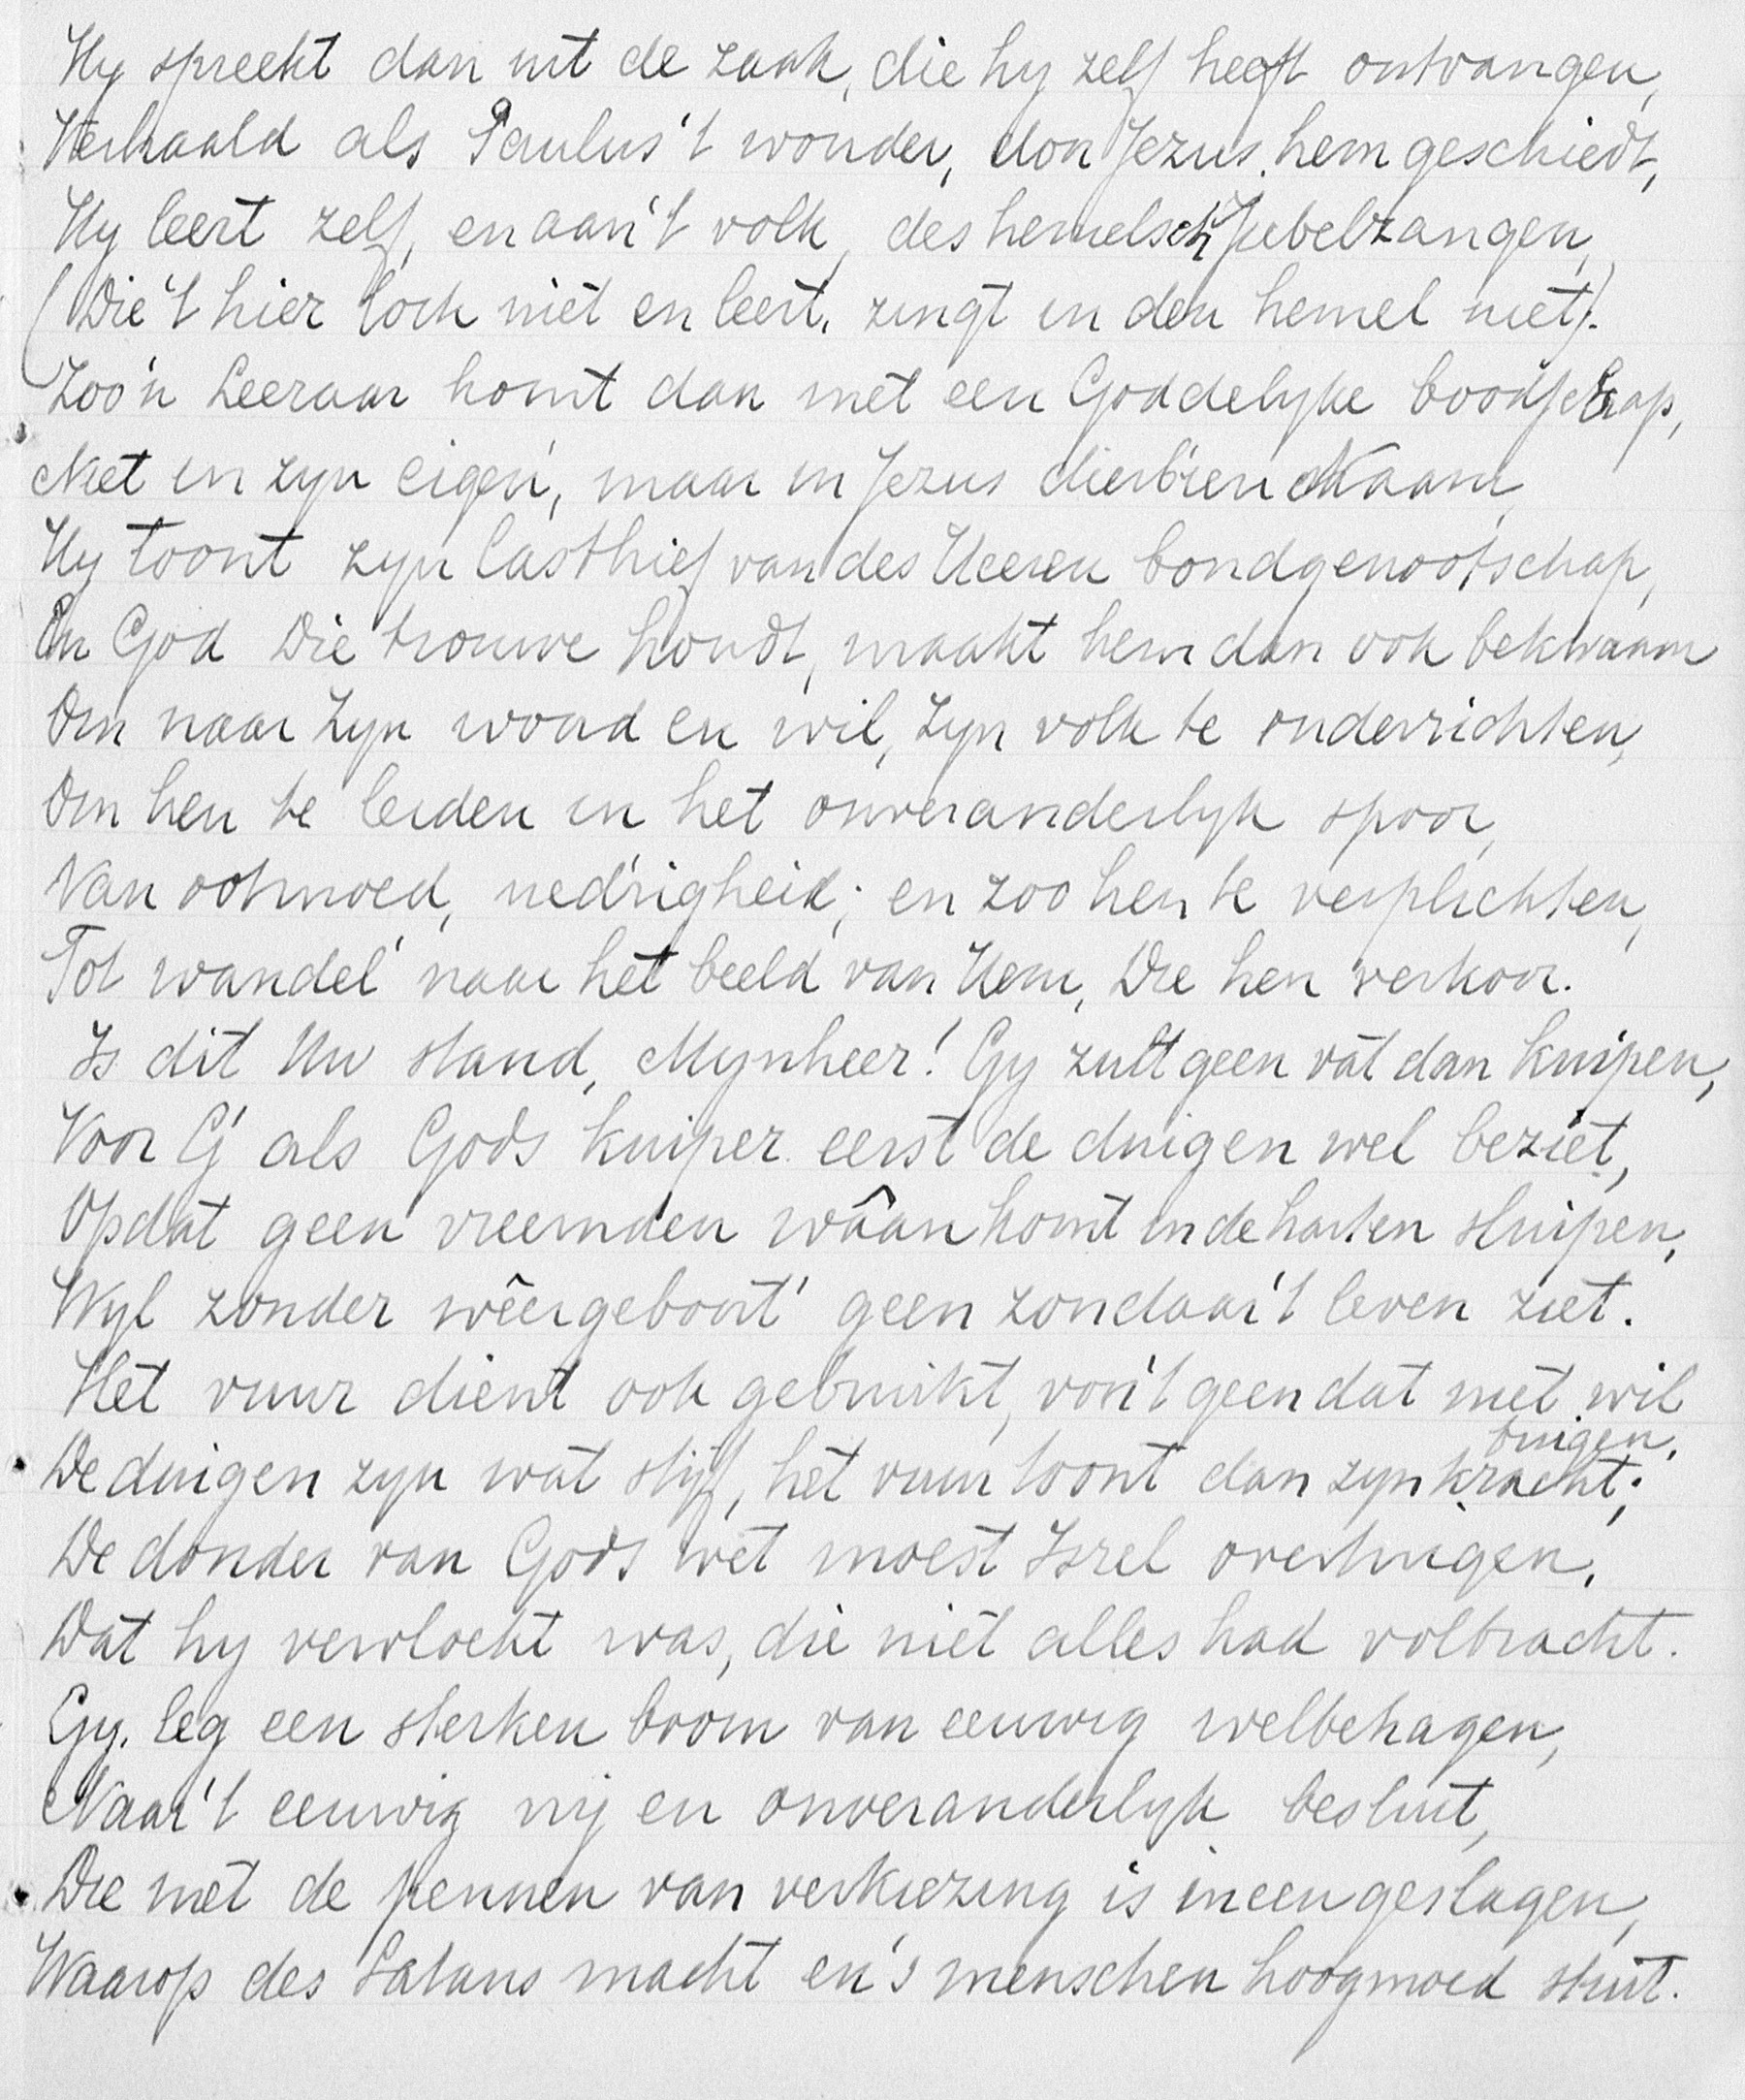 Hy spreekt dan uit de zaak, die hy zelf heeft ontvangen,
Verhaald als Paulus 't wonder, don Jezus hem geschiedt,
Hy leert zelf, en aan 't volk, des hemelsch Jubelzangen,
(Die 't hier toch niet en leert, zingt in den hemel niet).
Zoo'n Leeraar komt dan met een Goddelyke boodschap,
Niet in zyn eigen', maar in Jezus dierb'ren Naam,
Hy toont zyn lastbrief van des Heeren bondgenootschap,
En God Die trouwe houdt, maakt hem dan ook bekwaam
Om naar Zyn woord en wil, Zyn volk te onderrichten,
Om hen te leiden in het onveranderlyk spoor,
Van ootmoed, nedrigheid; en zoo hen te verplichten,
Tot wandel' naar het beeld van Hem, Die hen verkoor.
Is dit Uw stand, Mynheer! Gy zult geen vat dan kuipen,
Voor G' als Gods kuiper eerst de duigen wel beziet,
Opdat geen vreemden wâan komt in de harten sluipen,
Wyl zonder wêergeboort' geen zondaar 't leven ziet.
Het vuur dient ook gebruikt, voor 't geen dat niet wil
buigen.
De duigen zyn wat styf, het vuur toont dan zyn kracht;
De donder van Gods wet moest Isrel overtuigen,
Dat hy vervloekt was, die niet alles had volbracht.
Gy, leg een sterken boom van eeuwig welbehagen,
Naar 't eeuwig vrij en onveranderlyk besluit,
Die met de pennen van verkiezing is ineengeslagen,
Waarop des Satans macht en 's menschen hoogmoed stuit.